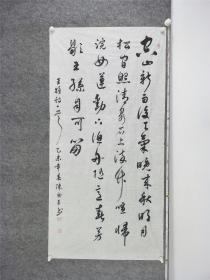 空山新雨後天氣晚來秋明月
松間照清泉石上流竹喧歸
浣女蓮動下漁舟隨意春芳
歇王孫自可留
王維詩 乙未